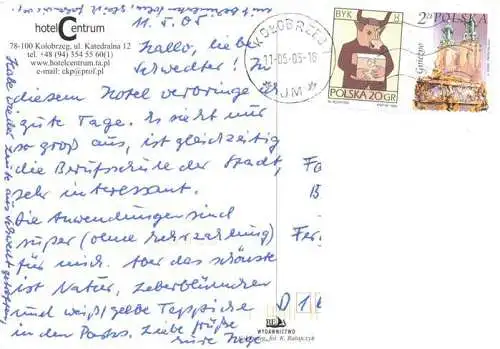 hotel Centrum
78-100 Kołobrzeg, ul. Katedralna 12
tel. +48 (94) 554 55 60(1)
www.hotelcentrum.ta.pl
e-mail: ckp@prof.pl
11.5.05
Hallo, liebe
Schwedter! In
diesem Hotel verbringe
gute Tage. Es sieht nur
so groß aus, ist gleichzeitig
die Berufsschule der Stadt,
sehr interessant.
Die Anwendungen sind
super (ohne Zuzahlung)
für mich. Aber das schönste
ist Natur, Leberblümchen
und weiß/gelbe Teppiche
in den Parks. Liebe Grüße
eure Inge
Habe wieder Leute aus Schwedt getroffen,
KOŁOBRZEG 1
11-05-05-16
JM
BYK
POLSKA 20 GR
2 zł POLSKA
Gniezno
Fa
B
Fer
D 1 6
WYDAWNICTWO
fot. K. Bałapczyk